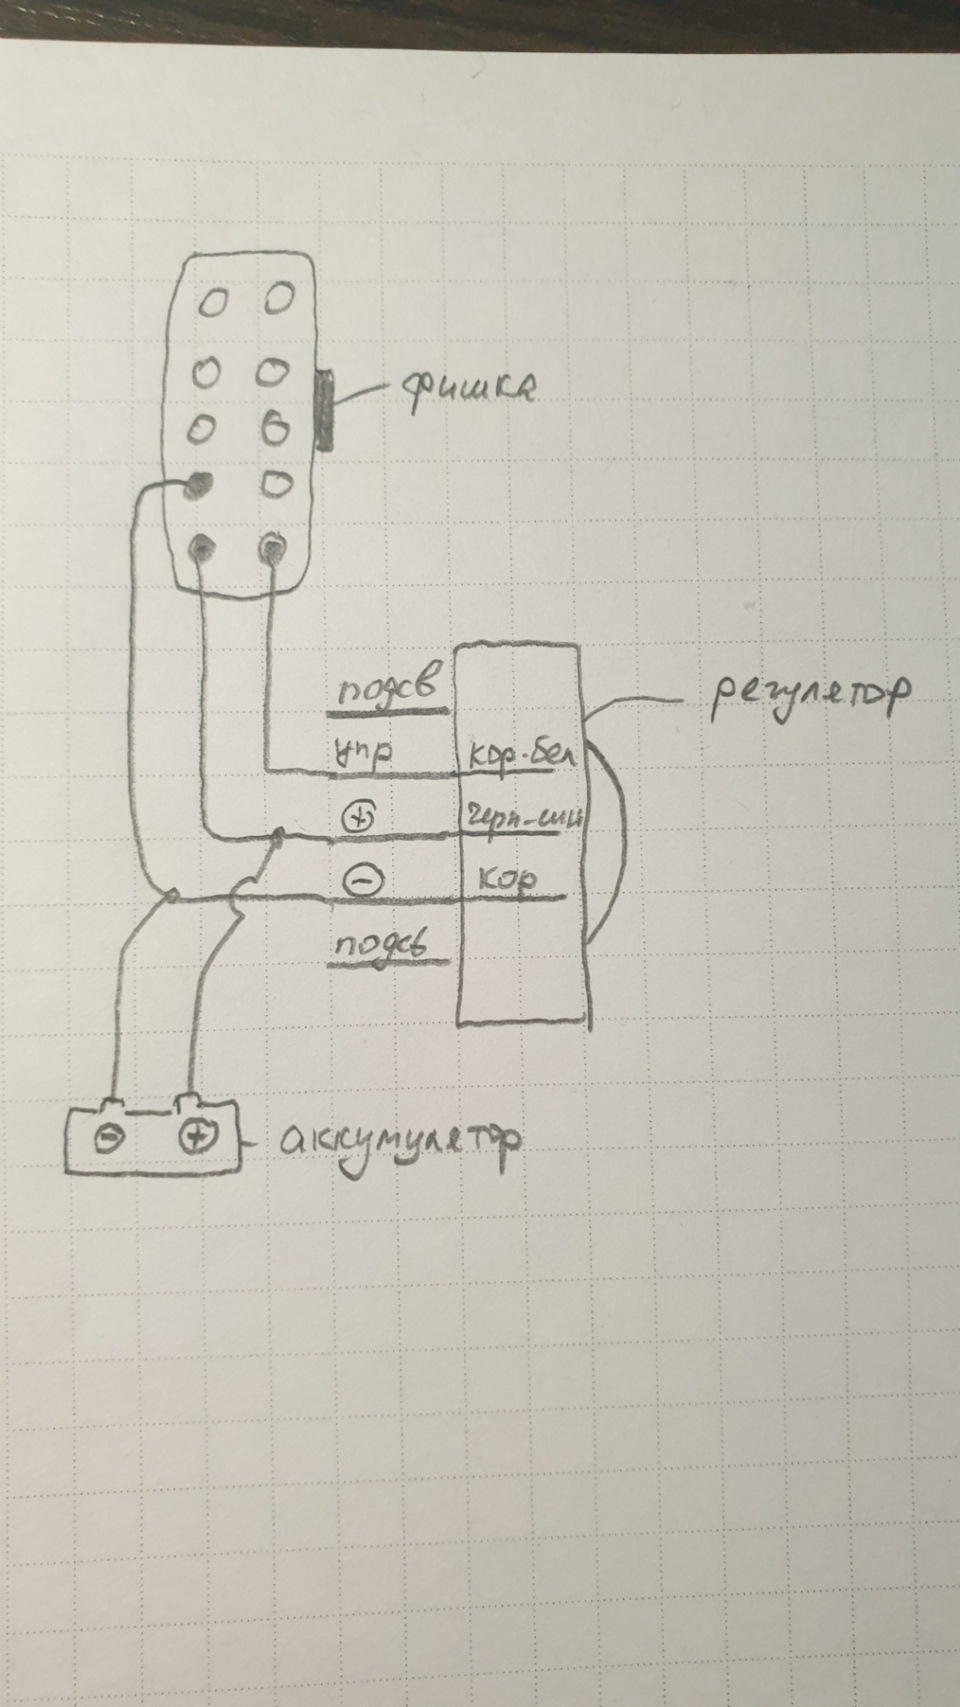 фишка
подсв
регулятор
упр кор-бел
+ черн-син
- кор
подсв
- + аккумулятор